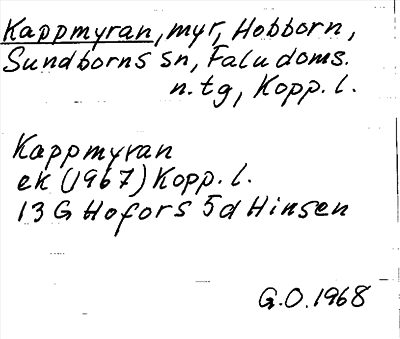 Kappmyran, myr, Hobborn,
Sundborns sn, Faludoms.
n. tg, Kopp. l.
Kappmyran
ek (1967) Kopp. l.
13 G Hofors 5d Hinsen
G.O. 1968